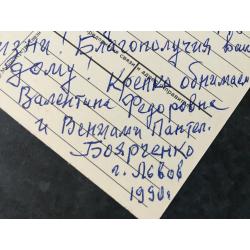 жизни. Благополучия ваш
дому! Крепко обнимаем
Валентина Федоровна
и Вениамин Пантел.
Боярченко
г. Львов
1990г